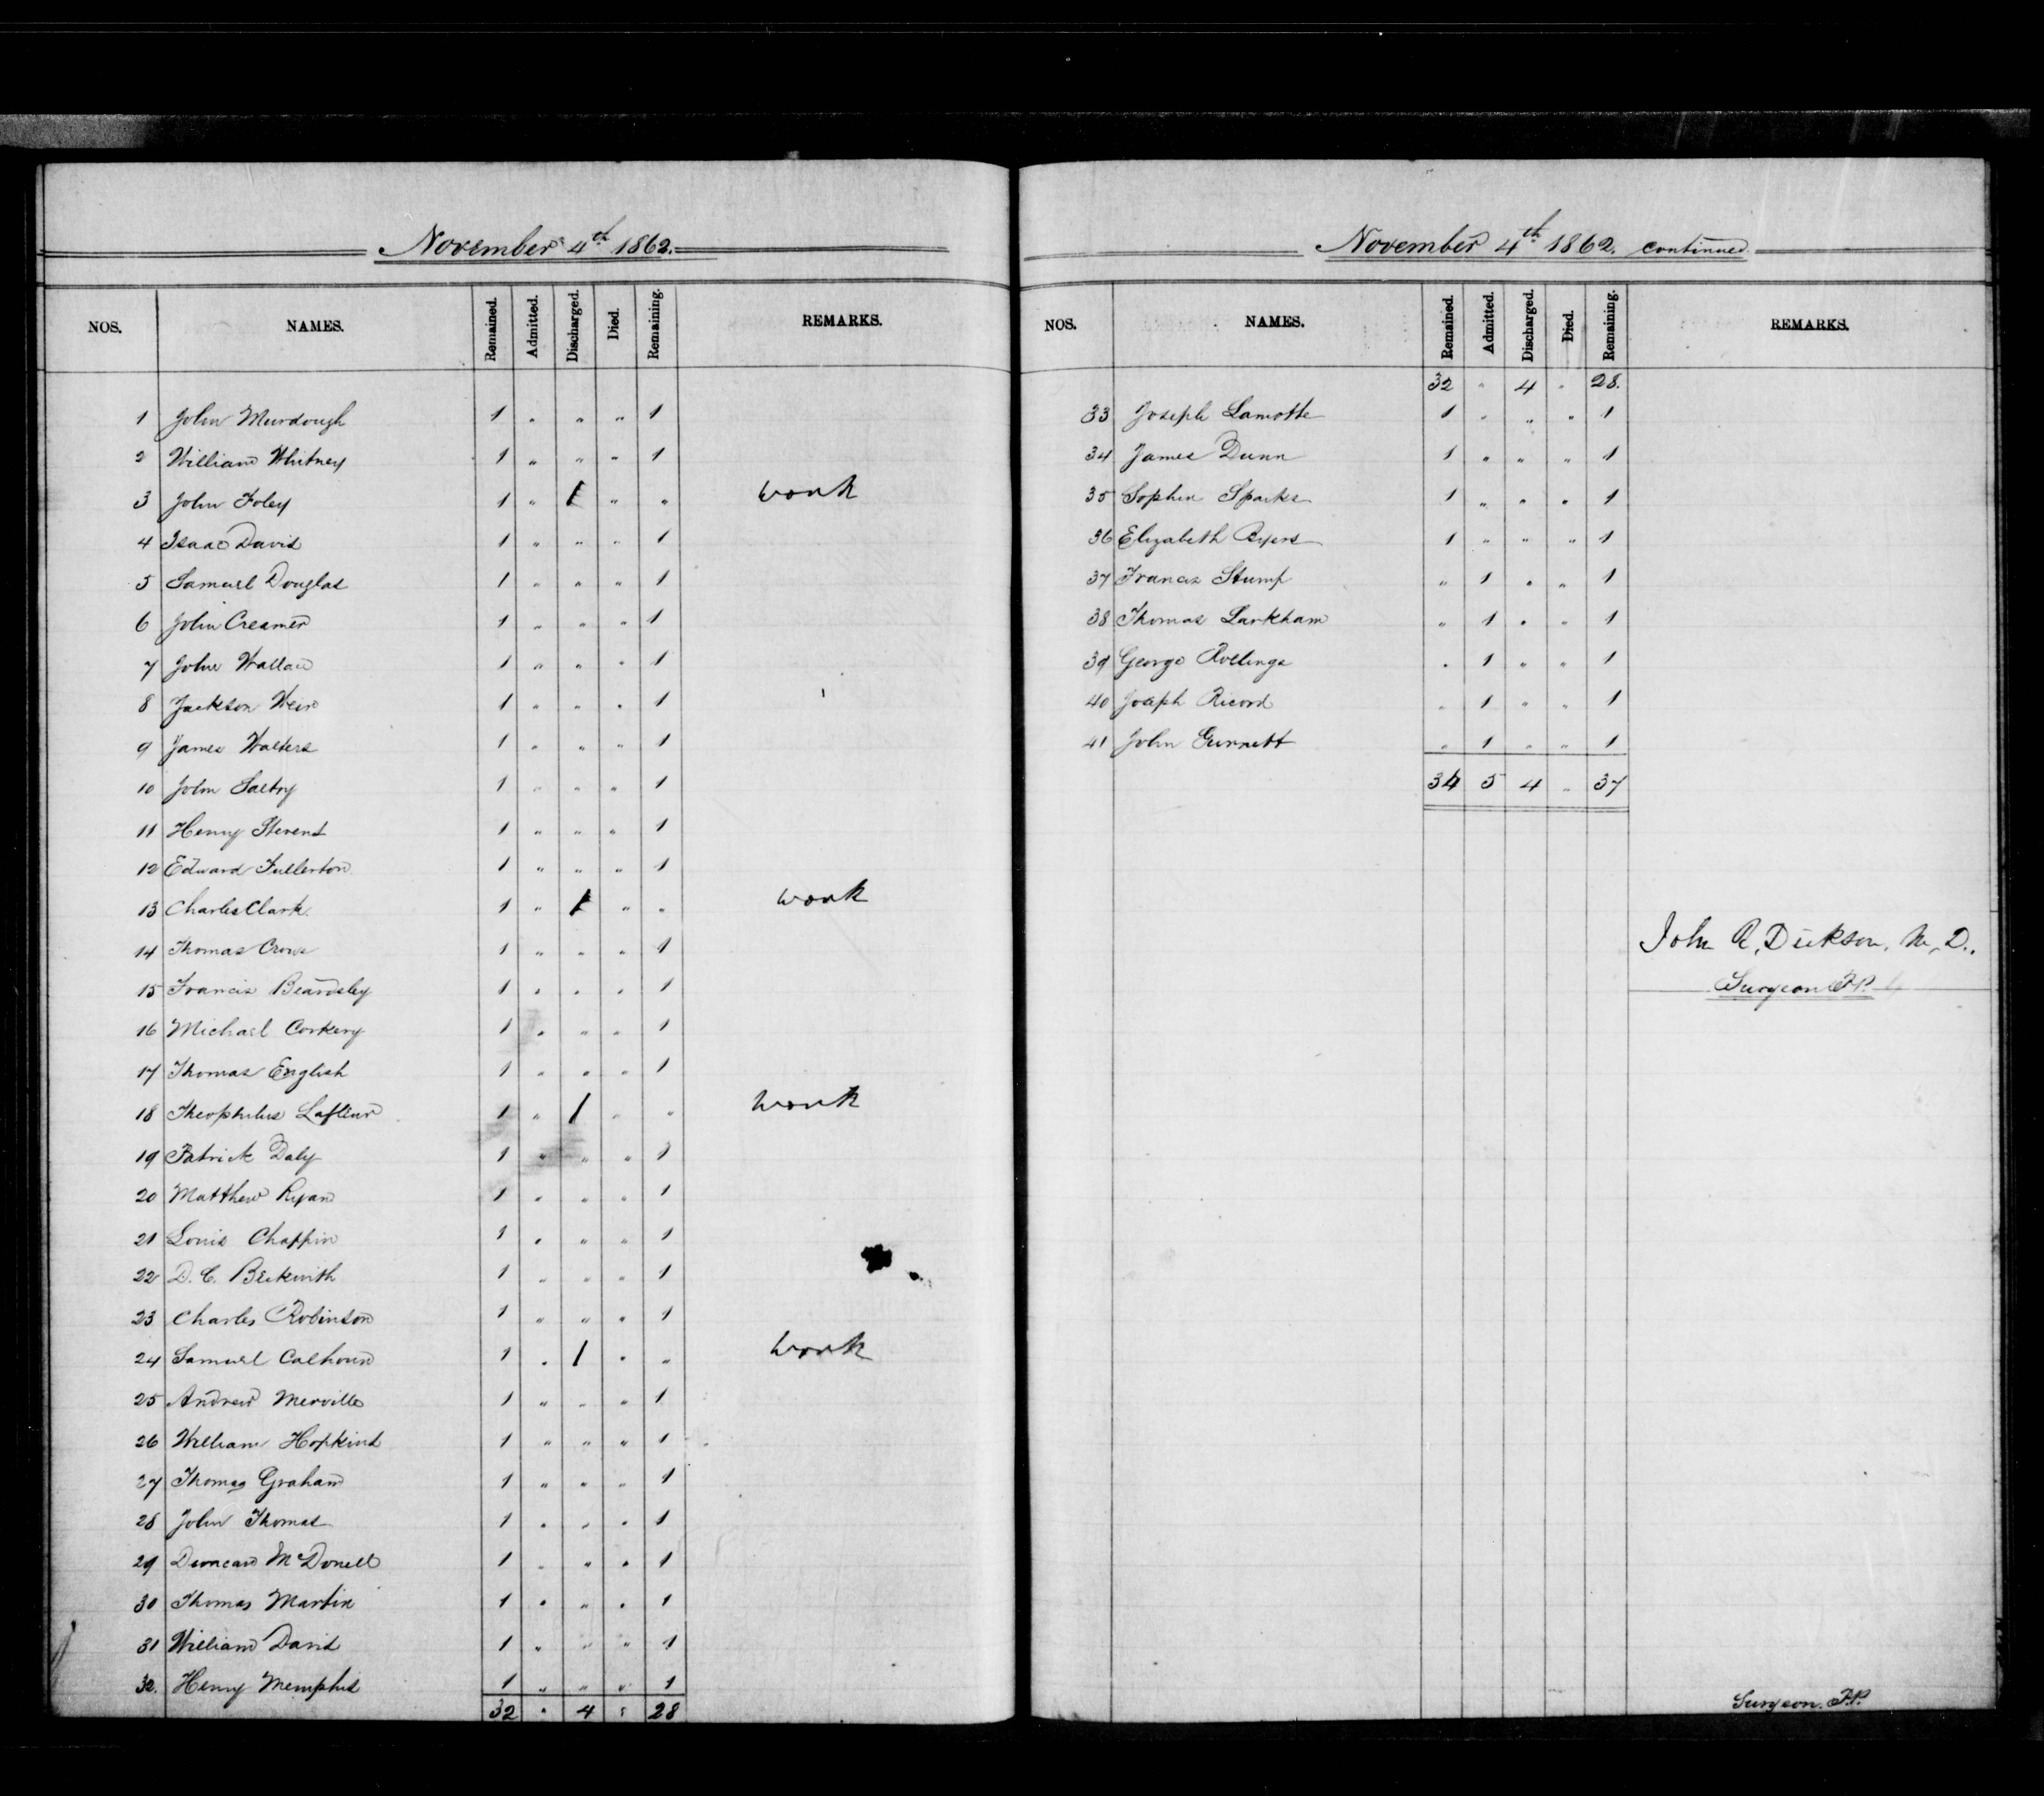 November 4th 1862.
NOS. NAMES. Remained. Admitted. Discharged. Died. Remaining. REMARKS.
1 John Murdough 1 " " " 1
2 William Whitney 1 " " " 1
3 John Foley 1 " 1 " " work
4 Isaac David 1 " " " 1
5 Samuel Douglas 1 " " " 1
6 John Creamer 1 " " " 1
7 John Wallace 1 " " " 1
8 Jackson Weir 1 " " " 1
9 James Walters 1 " " " 1
10 John Saltry 1 " " " 1
11 Henry Stevens 1 " " " 1
12 Edward Fullerton 1 " " " 1
13 Charles Clark. 1 " 1 " " work
14 Thomas Crows 1 " " " 1
15 Francis Beardsley 1 " " " 1
16 Michael Corkery 1 " " " 1
17 Thomas English 1 " " " 1
18 Theophulus Lafleur 1 " 1 " " work
19 Patrick Daly 1 " " " 1
20 Matthew Ryan 1 " " " 1
21 Louis Chappin 1 " " " 1
22 D. C. Beckwith 1 " " " 1
23 Charles Robinson 1 " " " 1
24 Samuel Calhoun 1 " 1 " " work
25 Andrew Merville 1 " " " 1
26 William Hopkins 1 " " " 1
27 Thomas Graham 1 " " " 1
28 John Thomas 1 " " " 1
29 Duncan McDonell 1 " " " 1
30 Thomas Martin 1 " " " 1
31 William David 1 " " " 1
32. Henry Memphis 1 " " " 1
32 " 4 " 28
November 4th 1862. continued
NOS. NAMES. Remained. Admitted. Discharged. Died. Remaining. REMARKS.
32 " 4 " 28.
33 Joseph Lamotte 1 " " " 1
34 James Dunn 1 " " " 1
35 Sophia Sparks 1 " " " 1
36 Elizabeth Byers 1 " " " 1
37 Francis Stump " 1 " " 1
38 Thomas Larkham " 1 " " 1
39 George Rollings " 1 " " 1
40 Joseph Ricord " 1 " " 1
41 John Gunnett " 1 " " 1
34 5 4 " 37
John R. Dickson, M.D.
Surgeon P.P.
Surgeon. P.P.